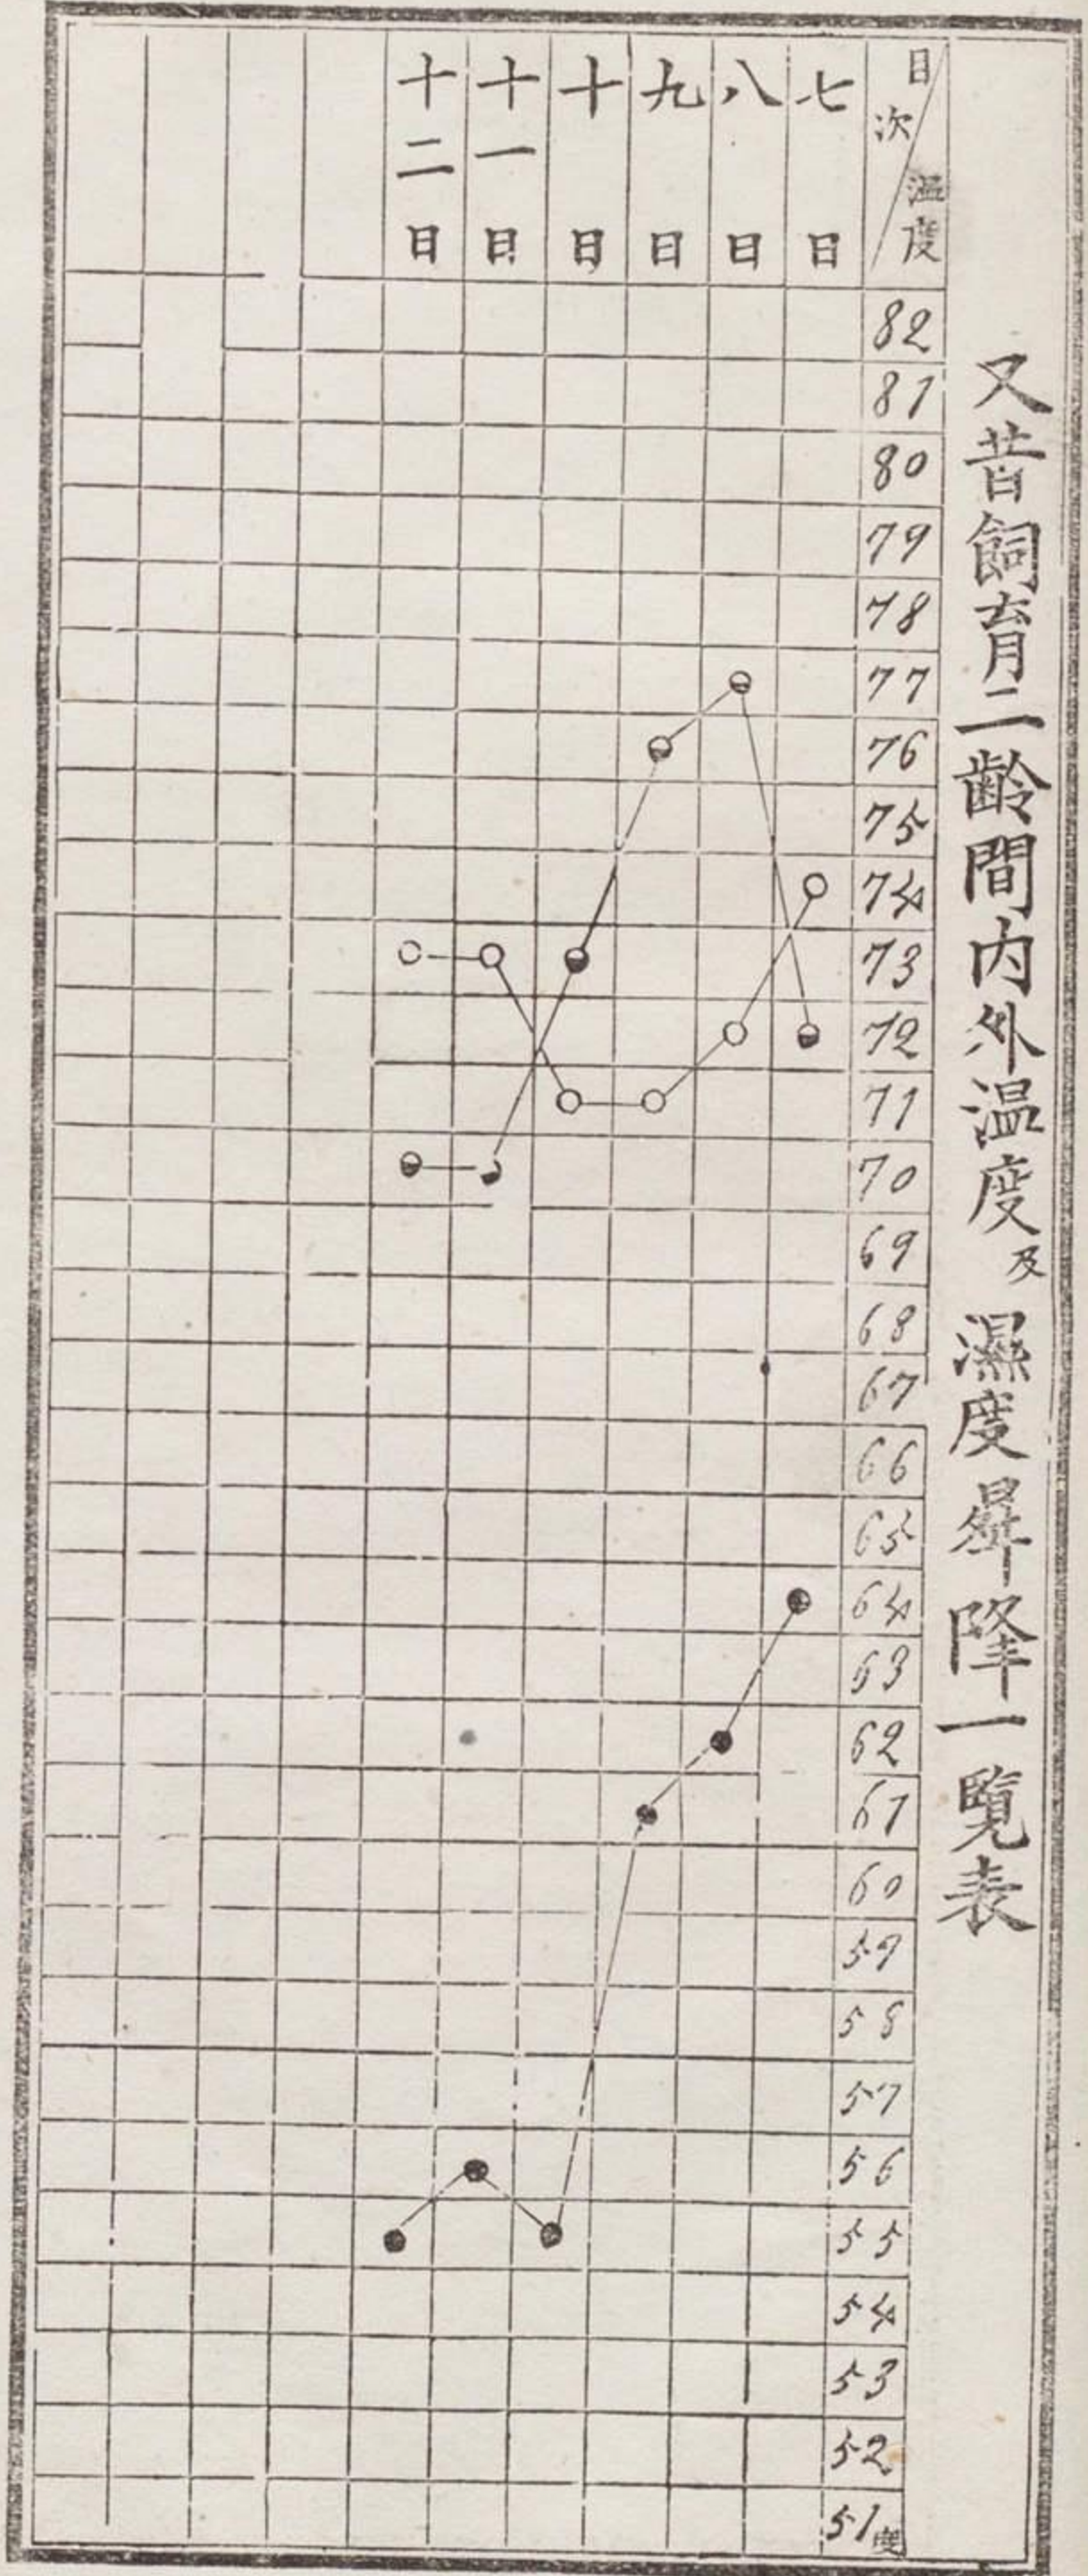 又昔飼育二齢間内外温度及濕度昇降一覧表
目次
温度
七日
八日
九日
十日
十一日
十二日
82
81
80
79
78
77
76
75
74
73
72
71
70
69
68
67
66
65
64
63
62
61
60
59
58
57
56
55
54
53
52
51度